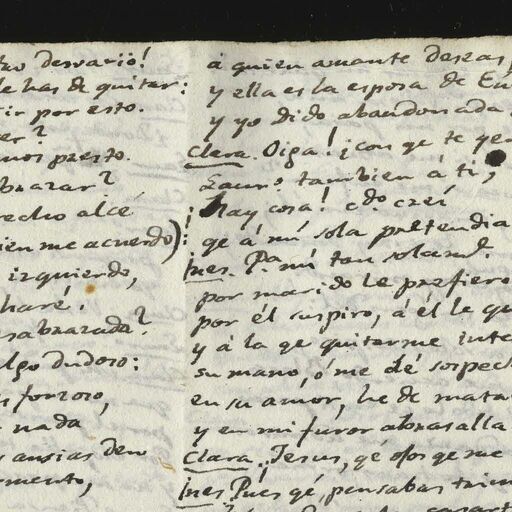 desvario!
le has de quitar:
ir por esto.
er?
mos presto.
brazar?
recho alcé
ien me acuerdo):
izquierdo,
haré.
sabrazada?
algo dudoso:
forzoso,
nada,
ansias den
mento,
á quien amante deseas
y ella es la esposa de En
y yo dido abandonada
Clara. Oiga! ¡con qe te ven
Laur.o tambien á ti,
¡Hay cosa! c.do crei
qe á mi sola pretendia
Ines. P.a mi tan solam.te
por marido le prefiero
por él suspiro, á él le qu
y á la qe quitarme inte
su mano, ó me dé sospech
en su amor, he de mata
y en mi furor abrasalla
Clara. Jesus, qé ojos qe me
Ines. Pues qé, pensabas